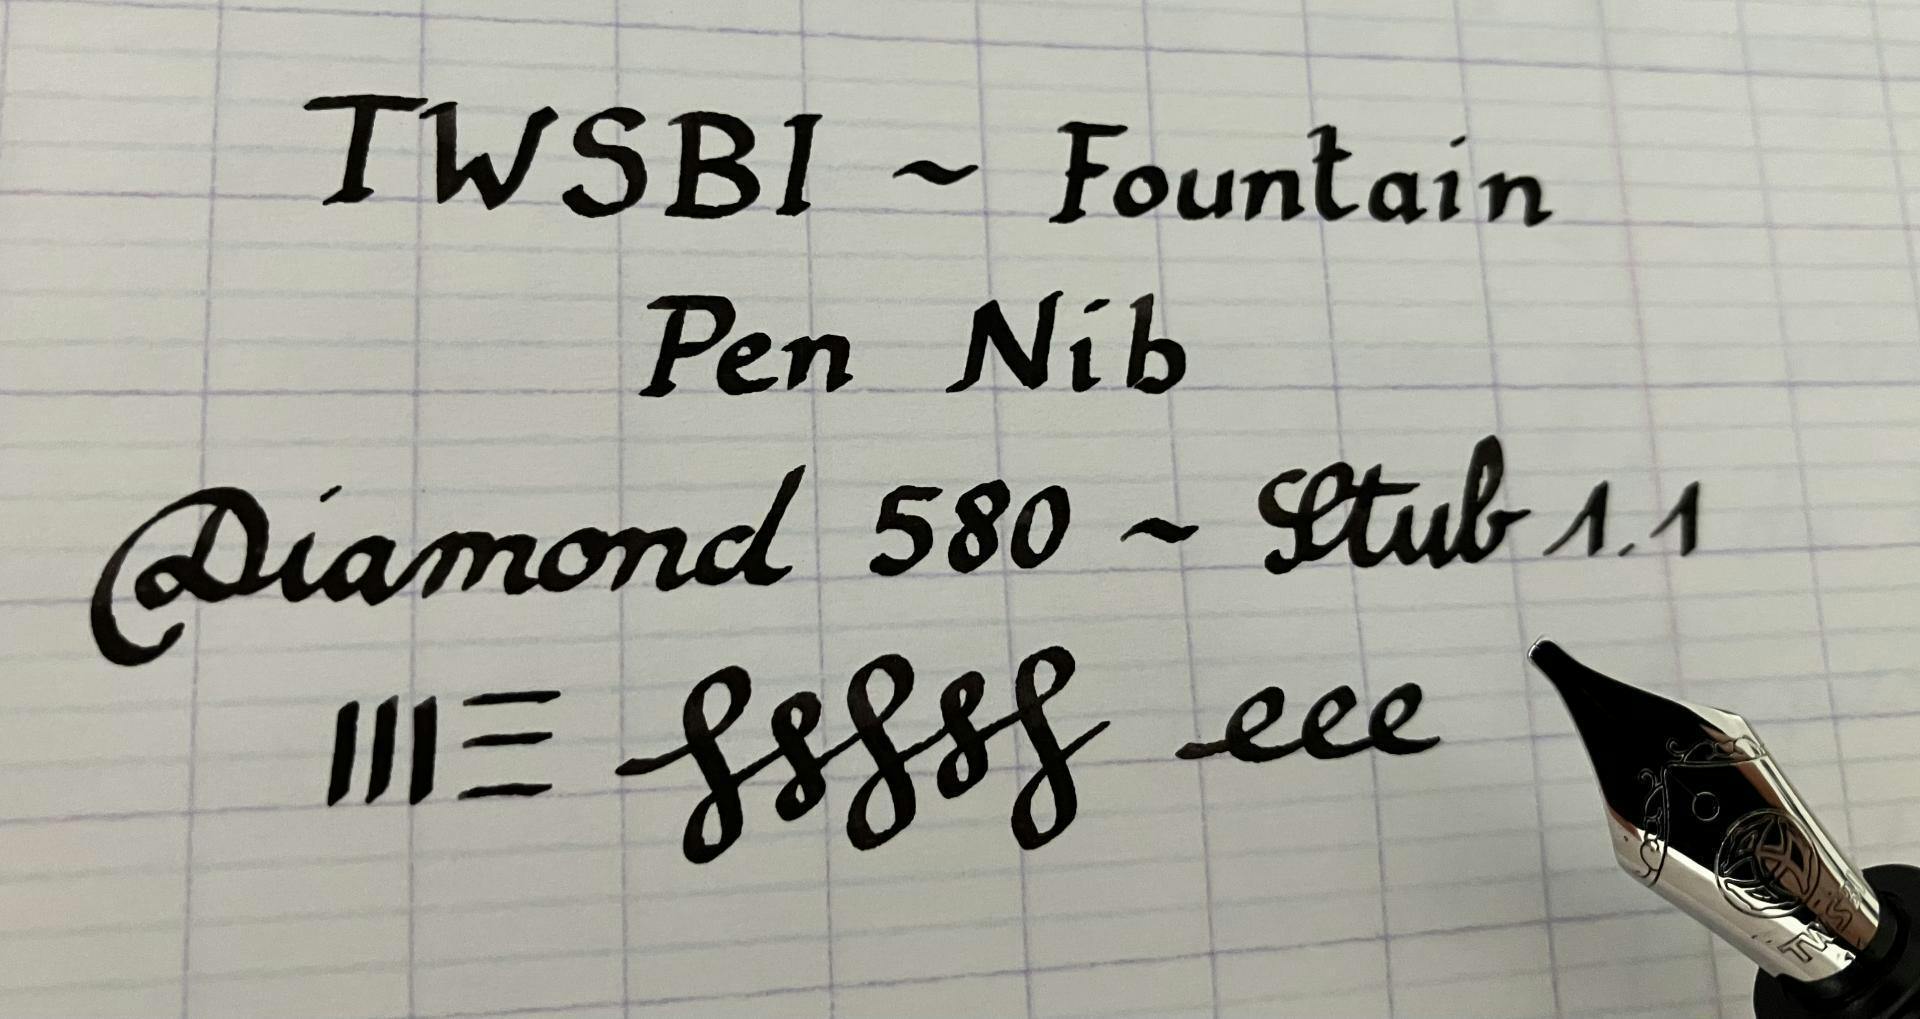 TWSBI ~ Fountain
Pen Nib
Diamond 580 ~ Stub 1.1
eee
TWSBI